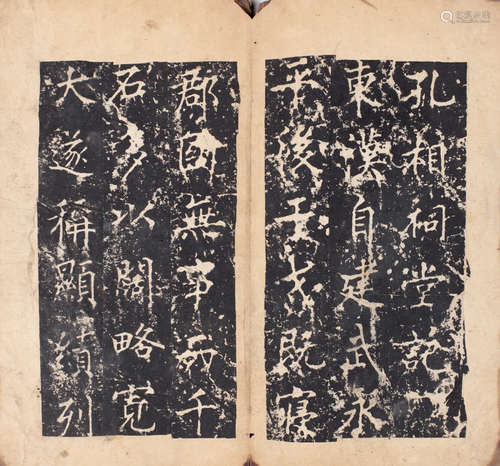 孔相祠堂記
東漢自建武永
平後干戈既寢
郡國無事兩千
石多以闊略寬
大遂稱顯績列